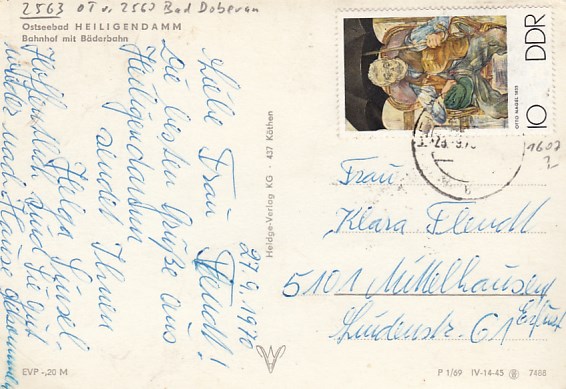 2563 OT v. 2560 Bad Doberan
Ostseebad HEILIGENDAMM
Bahnhof mit Bäderbahn
27.9.1970
Liebe Frau Flendt!
Die besten Grüße aus
Heiligendamm
sendet Ihnen
Helga
Hoffentlich sind Sie gut
wieder nach Hause
EVP -,20 M
Heldge-Verlag KG · 437 Köthen
DDR
10
OTTO NAGEL 1935
1602
?
Frau
Klara Flendt
5101 Mittelhausen
Erfurt
Lindenstr. 61
P 1/69 IV-14-45 R 7488